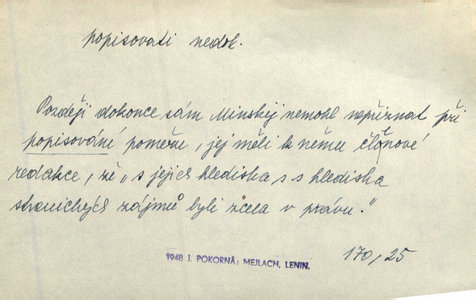 popisovati nedok.
Později dokonce sám Minskij nemohl nepřiznat při
popisování poměru, jej měli k němu členové
redakce, že „s jejich hlediska s s hlediska
stranických zájmů byli zcela v právu."
170, 25
1948 J. POKORNÁ: MEJLACH, LENIN.